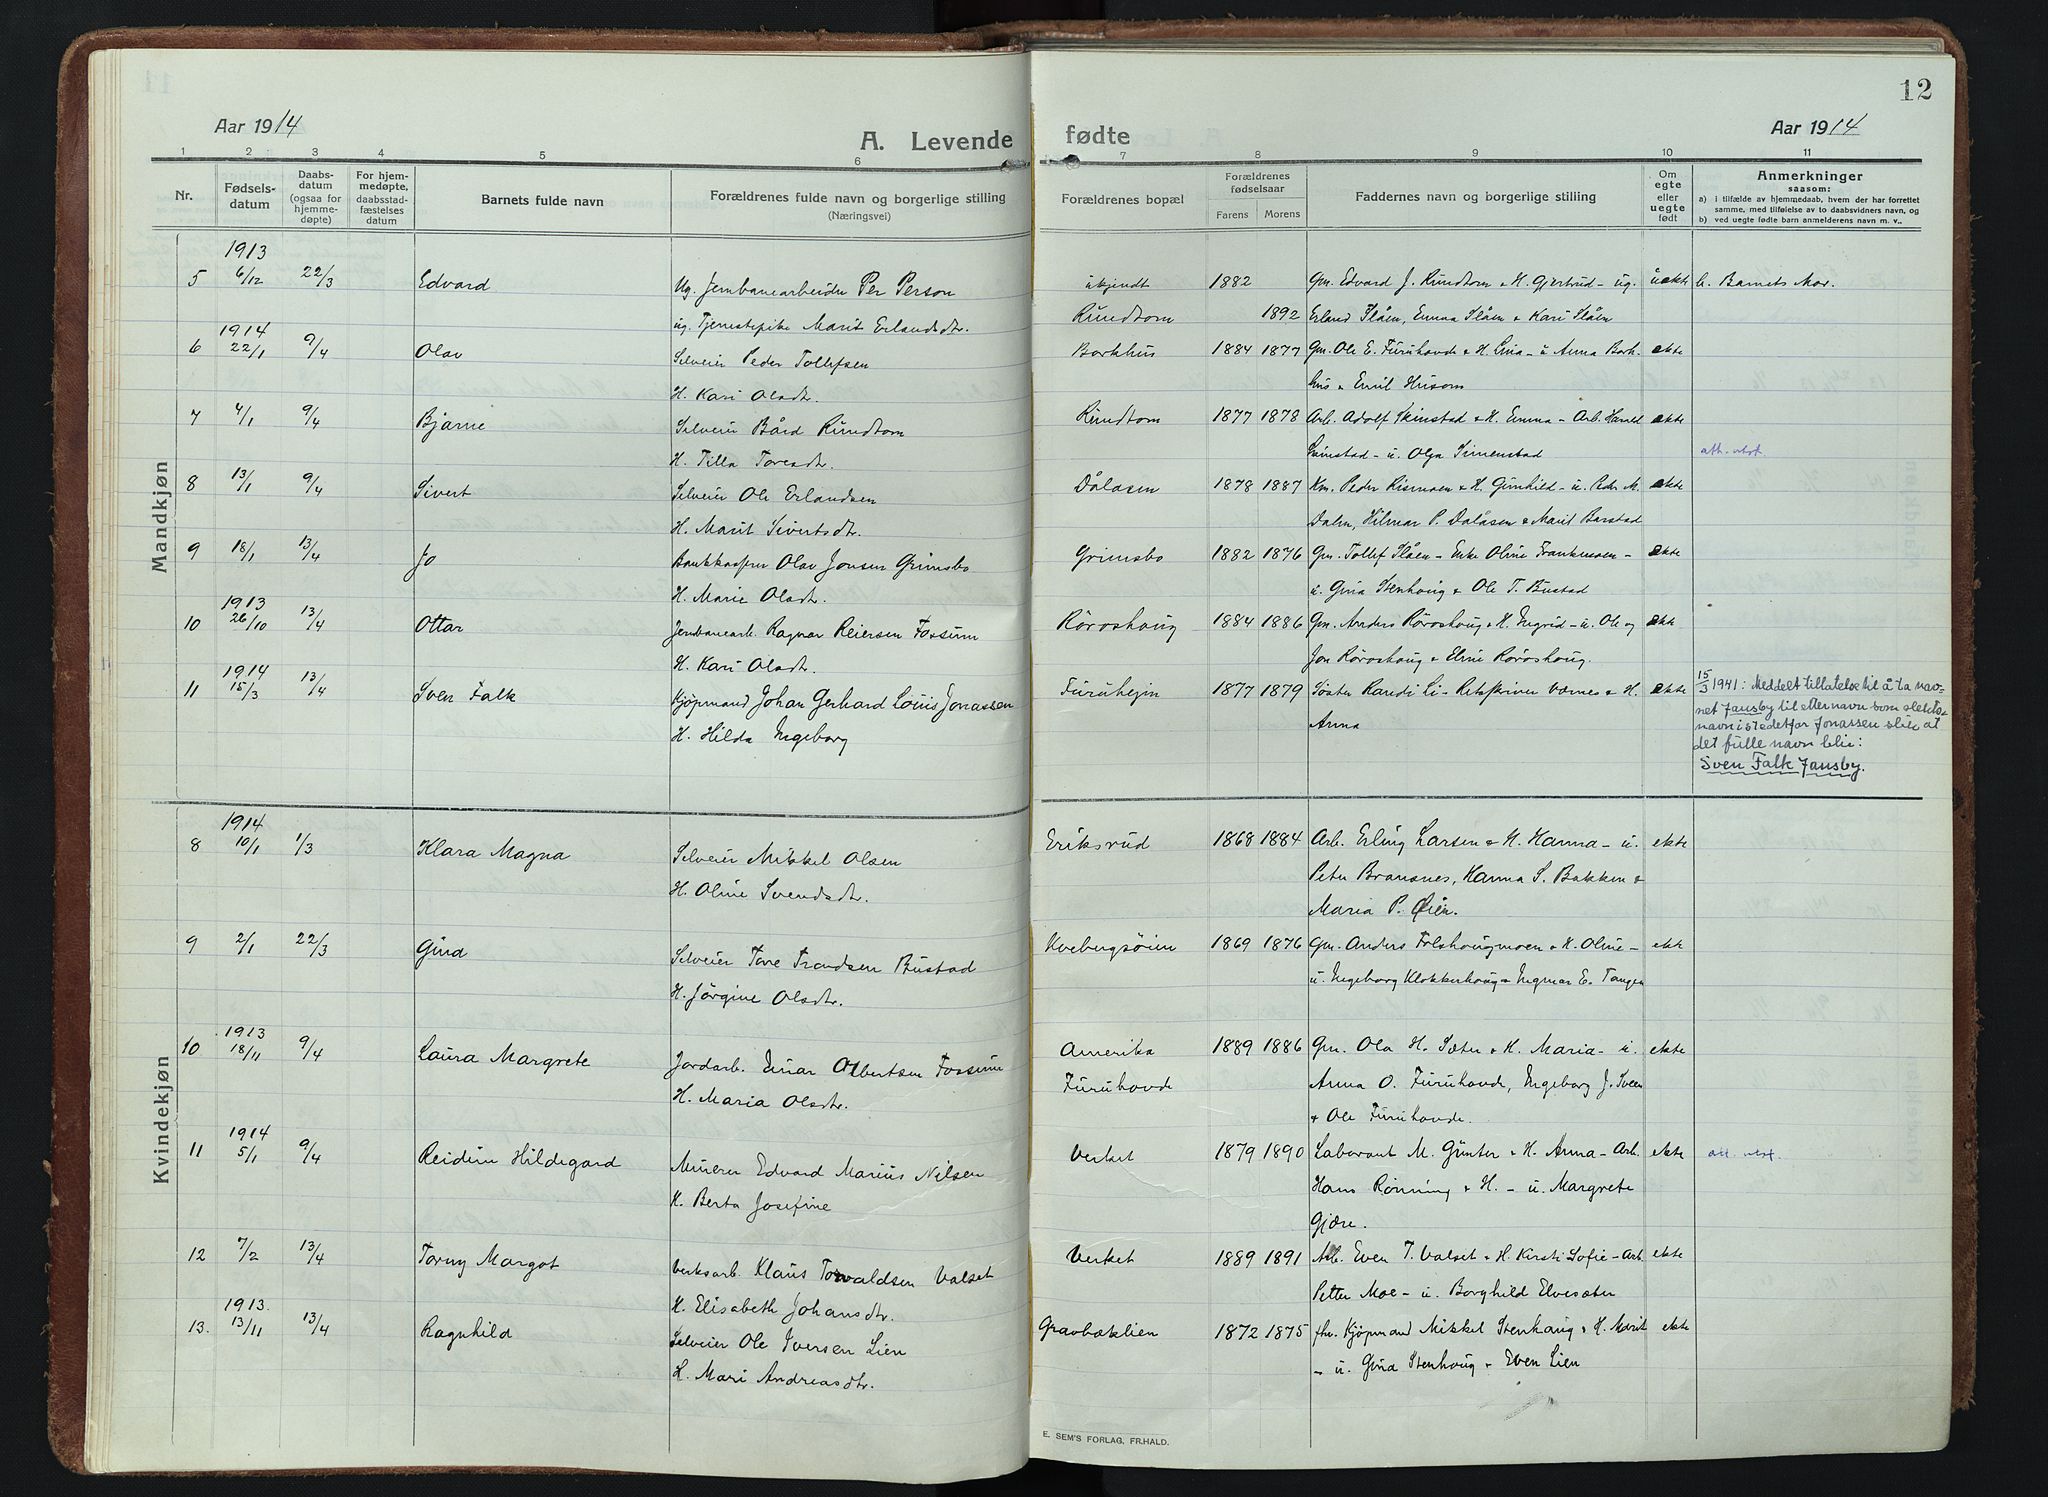 12
Aar 1914
A. Levende fødte
Aar 1914
1 2 3 4 5 6 7 8 9 10 11
Nr.
Fødsels-
datum
Daabs-
datum
(ogsaa for
hjemme-
døpte)
For hjem-
medøpte,
daabsstad-
fæstelses
datum
Barnets fulde navn
Forældrenes fulde navn og borgerlige stilling
(Næringsvei)
Forældrenes bopæl
Forældrenes
fødselsaar
Farens Morens
Faddernes navn og borgerlige stilling
Om
egte
eller
uegte
født
Anmerkninger
saasom:
a) i tilfælde av hjemmedaab, hvem der har forrettet
samme, med tilføielse av to daabsvidners navn, og
b) ved uegte fødte barn anmelderens navn m. v..
Mandkjøn
1913
5 6/12 22/3 Edvard Ug. Jernbanearbeider Per Person ukjendt 1882 Gm. Edvard J. Rundtom & H. Gjertrud - ug. uekte b. Barnets Mor.
ug. Tjenestepike Marit Erlandsdtr. Rundtom 1892 Erland Slåen, Emma Slåen & Kari Slåen
1914
6 22/1 9/4 Olav Selveier Peder Tollefsen Barkhus 1884 1877 Gm. Ole E. Furuhovde & H. Lina - u. Anna Bark- ekte
H. Kari Olsdtr. hus & Emil Husom
7 4/1 9/4 Bjarne Selveier Bård Rundtom Rundtom 1877 1878 Arb. Adolf Skinstad & H. Emma - Arb. Harald ekte
H. Tilla Toresdtr. - u. Olga Simenstad att. utst.
8 13/1 9/4 Sivert Selveier Ole Erlandsen Dålåsen 1878 1887 Km. Peder Rismoen & H. Gunhild - u. Peder M. ekte
H. Marit Sivertsdtr. Dalen, Hilmar P. Dalåsen & Marit Barstad
9 18/1 13/4 Jo Bankkasserer Olav Jonsen Grimsbo Grimsbo 1882 1876 Gm. Tollef Slåen - Enke Oline Frankmoen - ekte
H. Marie Olsdtr. u. Gina Stenhoug & Ole T. Bustad
1913
10 26/10 13/4 Ottar Jernbanearb. Ragnar Reiersen Fossum Röroshoug 1884 1886 Gm. Anders Röroshoug & H. Ingrid - u. Ole og ekte
H. Kari Olsdtr. Jon Röroshoug & Eline Röroshoug.
1914
11 15/3 13/4 Sven Falk Kjøpmand Johan Gerhard Louis Jonassen Furuhejm 1877 1879 Søster Randi Li - Retsskriver Værnes & H. ekte
H. Hilda Ingeborg Anna
15/3 1941: Meddelt tillatelse til å ta nav-
net Jansby til etternavn som slekts-
navn istedetfor Jonassen slik at
det fulle navn blir:
Sven Falk Jansby.
Kvindekjøn
1914
8 10/1 1/3 Klara Magna Selveier Mikkel Olsen Eriksrud 1868 1884 Arb. Erling Larsen & H. Hanna - u. ekte
H. Oline Svendsdtr. Peter Bransnes, Hanna S. Bakken &
Maria P. Øien.
9 2/1 22/3 Gina Selveier Tore Trondsen Bustad Kvebergsöien 1869 1876 Gm. Anders Folshougmoen & H. Oline - ekte
H. Jörgine Olsdtr. u. Ingeborg Klokkerhoug & Ingmar E. Tangen
1913
10 18/11 9/4 Laura Margrete Jordarb. Einar Albertsen Fossum Amerika 1889 1886 Gm. Ola H. Sæter & H. Maria - u. ekte
H. Maria Olsdtr. Furuhovde Anna O. Furuhovde, Ingeborg J. Sveen
& Ole Furuhovde.
1914
11 5/1 9/4 Reidun Hildegard Minerer Edvard Marius Nilsen Verket 1879 1890 Laborant M. Günter & H. Anna - Arb. ekte att. utst.
H. Berta Josefine Hans Rønning & H. - u. Margrete
Gjære.
12 7/2 13/4 Torny Margot Verksarb. Klaus Torvaldsen Valset Verket 1889 1891 Arb. Even T. Valset & H. Kirsti Sofie - Arb. ekte
H. Elisabeth Johansdtr. Petter Moe - u. Borghild Elvesæter
1913.
13. 13/11 13/4 Ragnhild Selveier Ole Iversen Lien Gravbæklien 1872 1875 fhv. Kjøpmand Mikkel Stenhaug & H. Marit ekte
H. Mari Andreasdtr. - u. Gina Stenhoug & Even Lien
E. SEM'S FORLAG, FR.HALD.